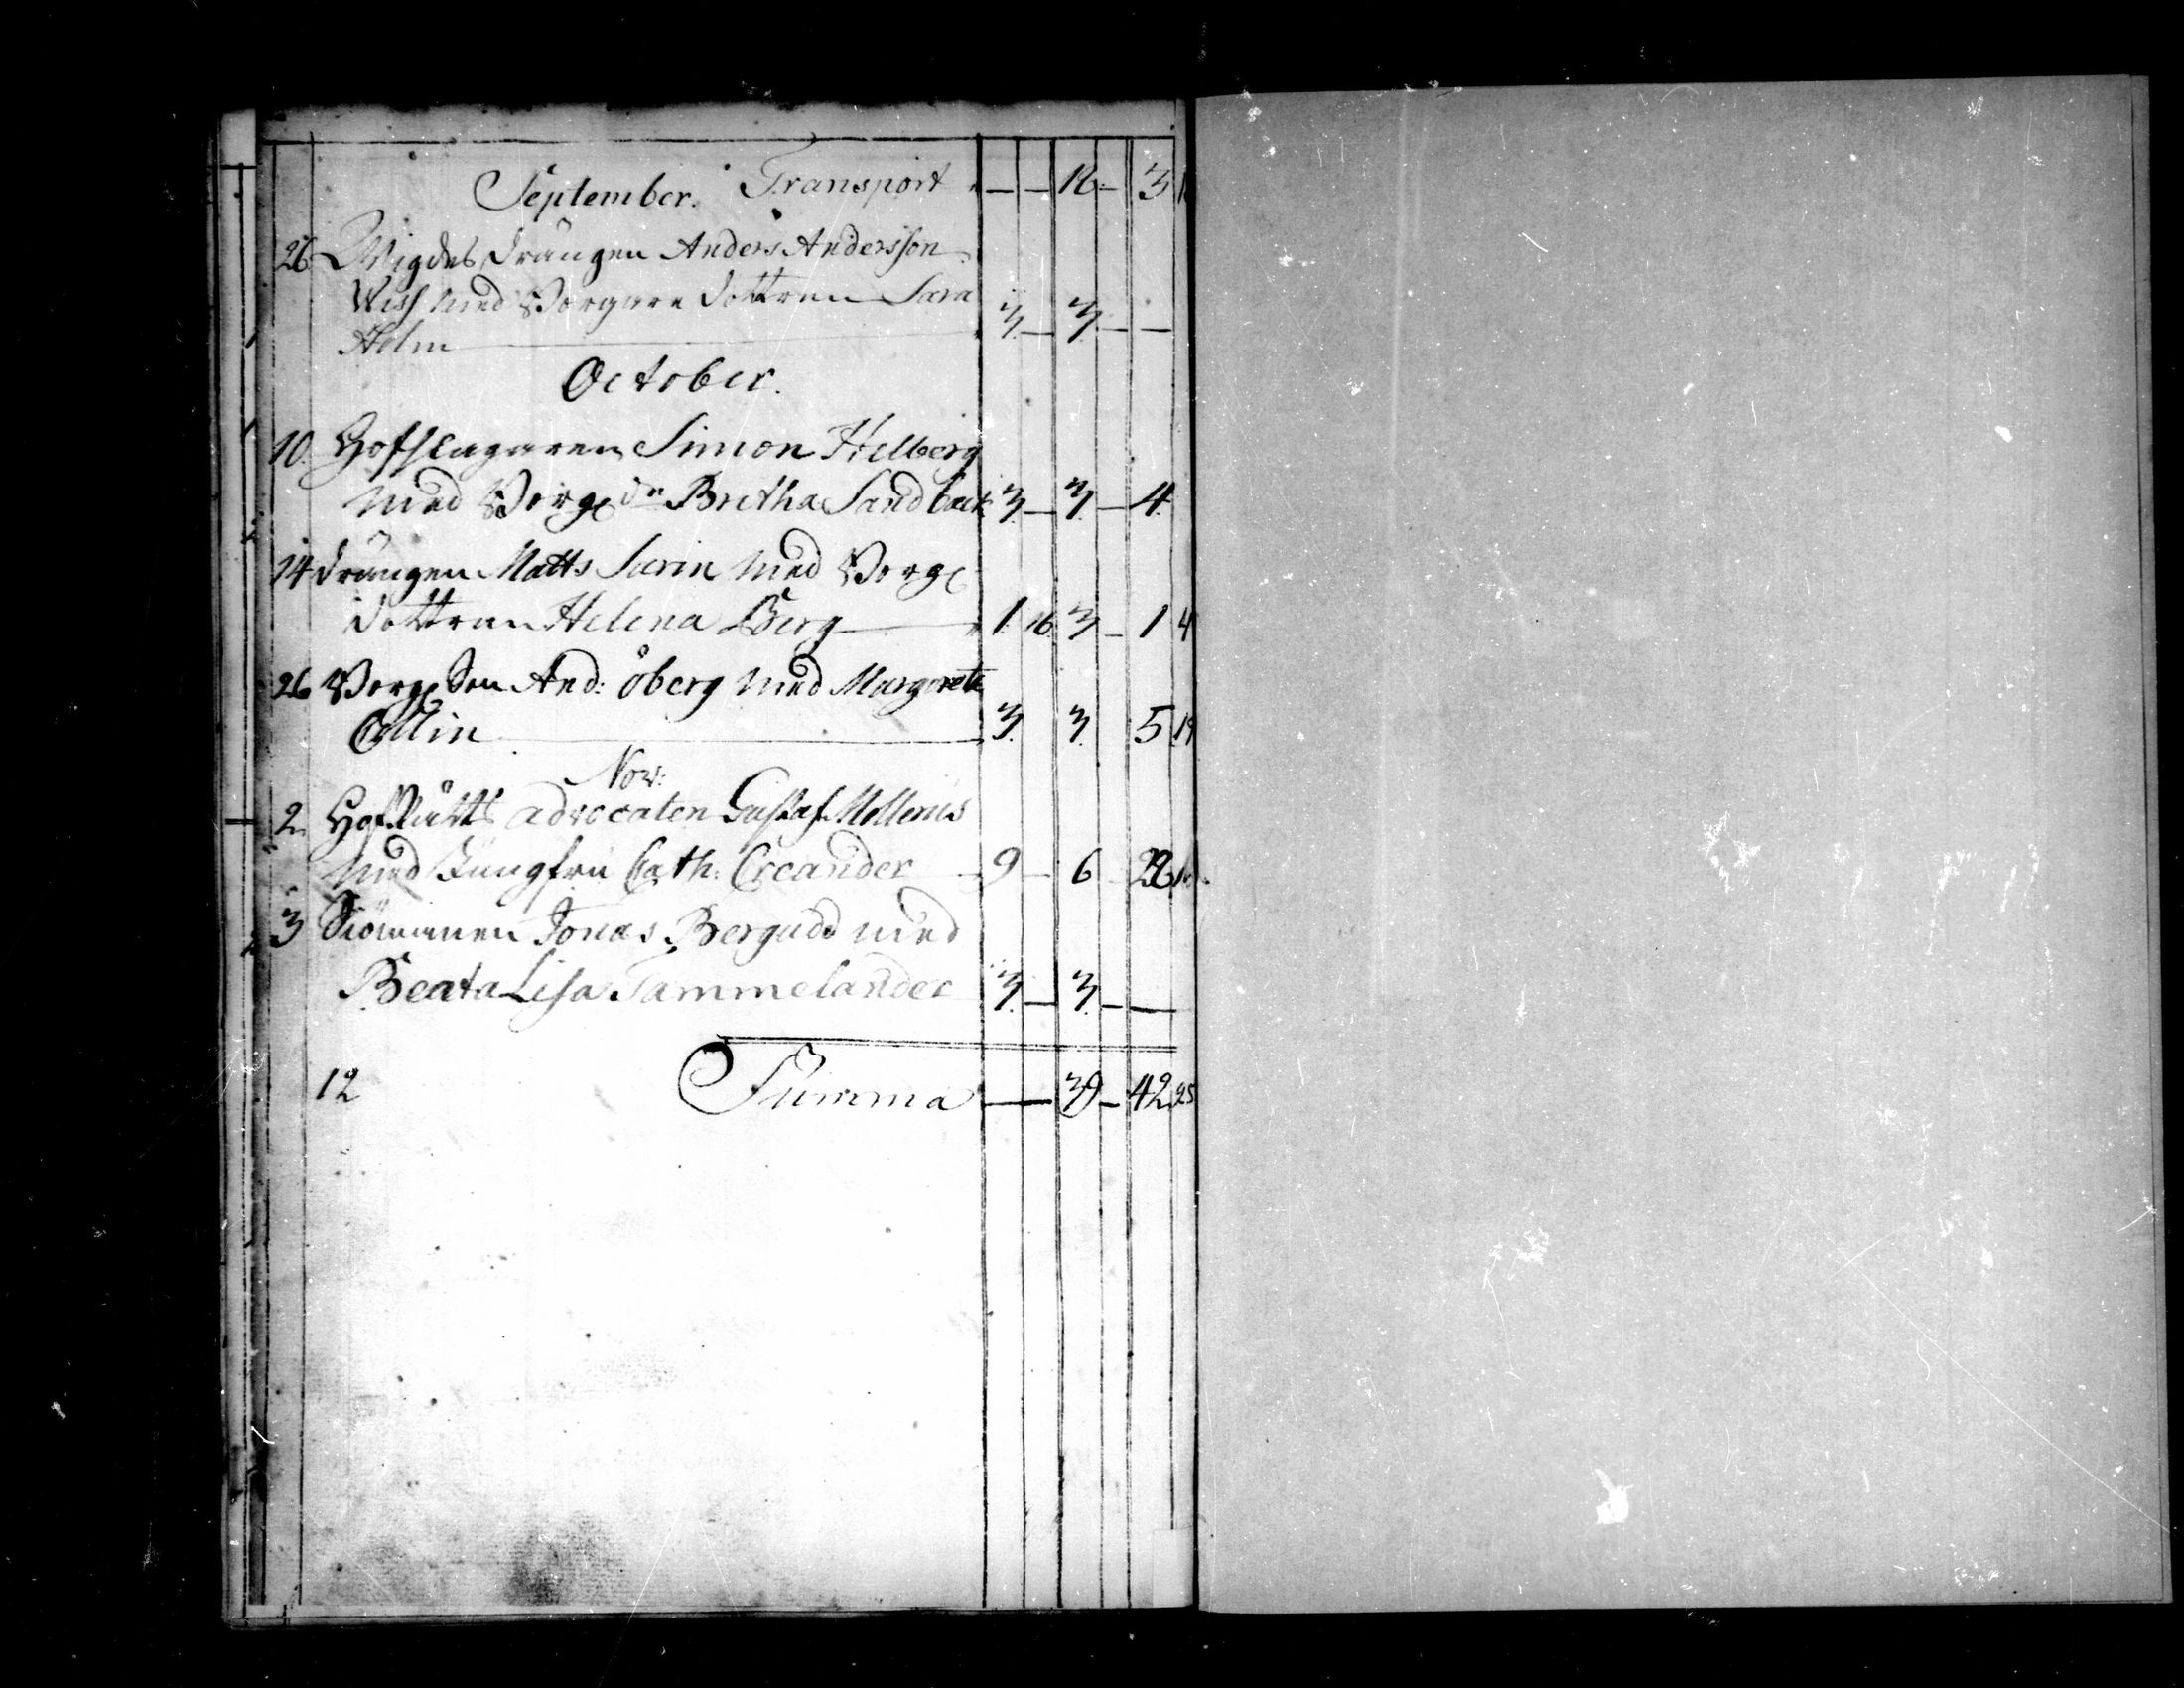 September. Transport — — 18 — 3
26 Wigdes Drängen Anders Andersson
Wish med Borgare dottren Sara
Holm 3 — 3 — —
October.
10. Hofslagaren Simon Helberg
med Borg: dr Bretha Sandback 3 — 3 — 4
14 Drängen Matts Sarin med Borg:
dottren Helena Berg 1 16 3 — 1 4
26 Borg: Son And: Öberg med Margareta
Collin 3. 3. 5 19
Nov:
2. HofRätts advocaten Gustaf Mollerus
med Jungfru Cath: Creander 9 — 6
3 Siömannen Jonas Bergudd med
Beata Lisa Tammelander 3 — 3 — —
12 Summa — 39 — 42 25